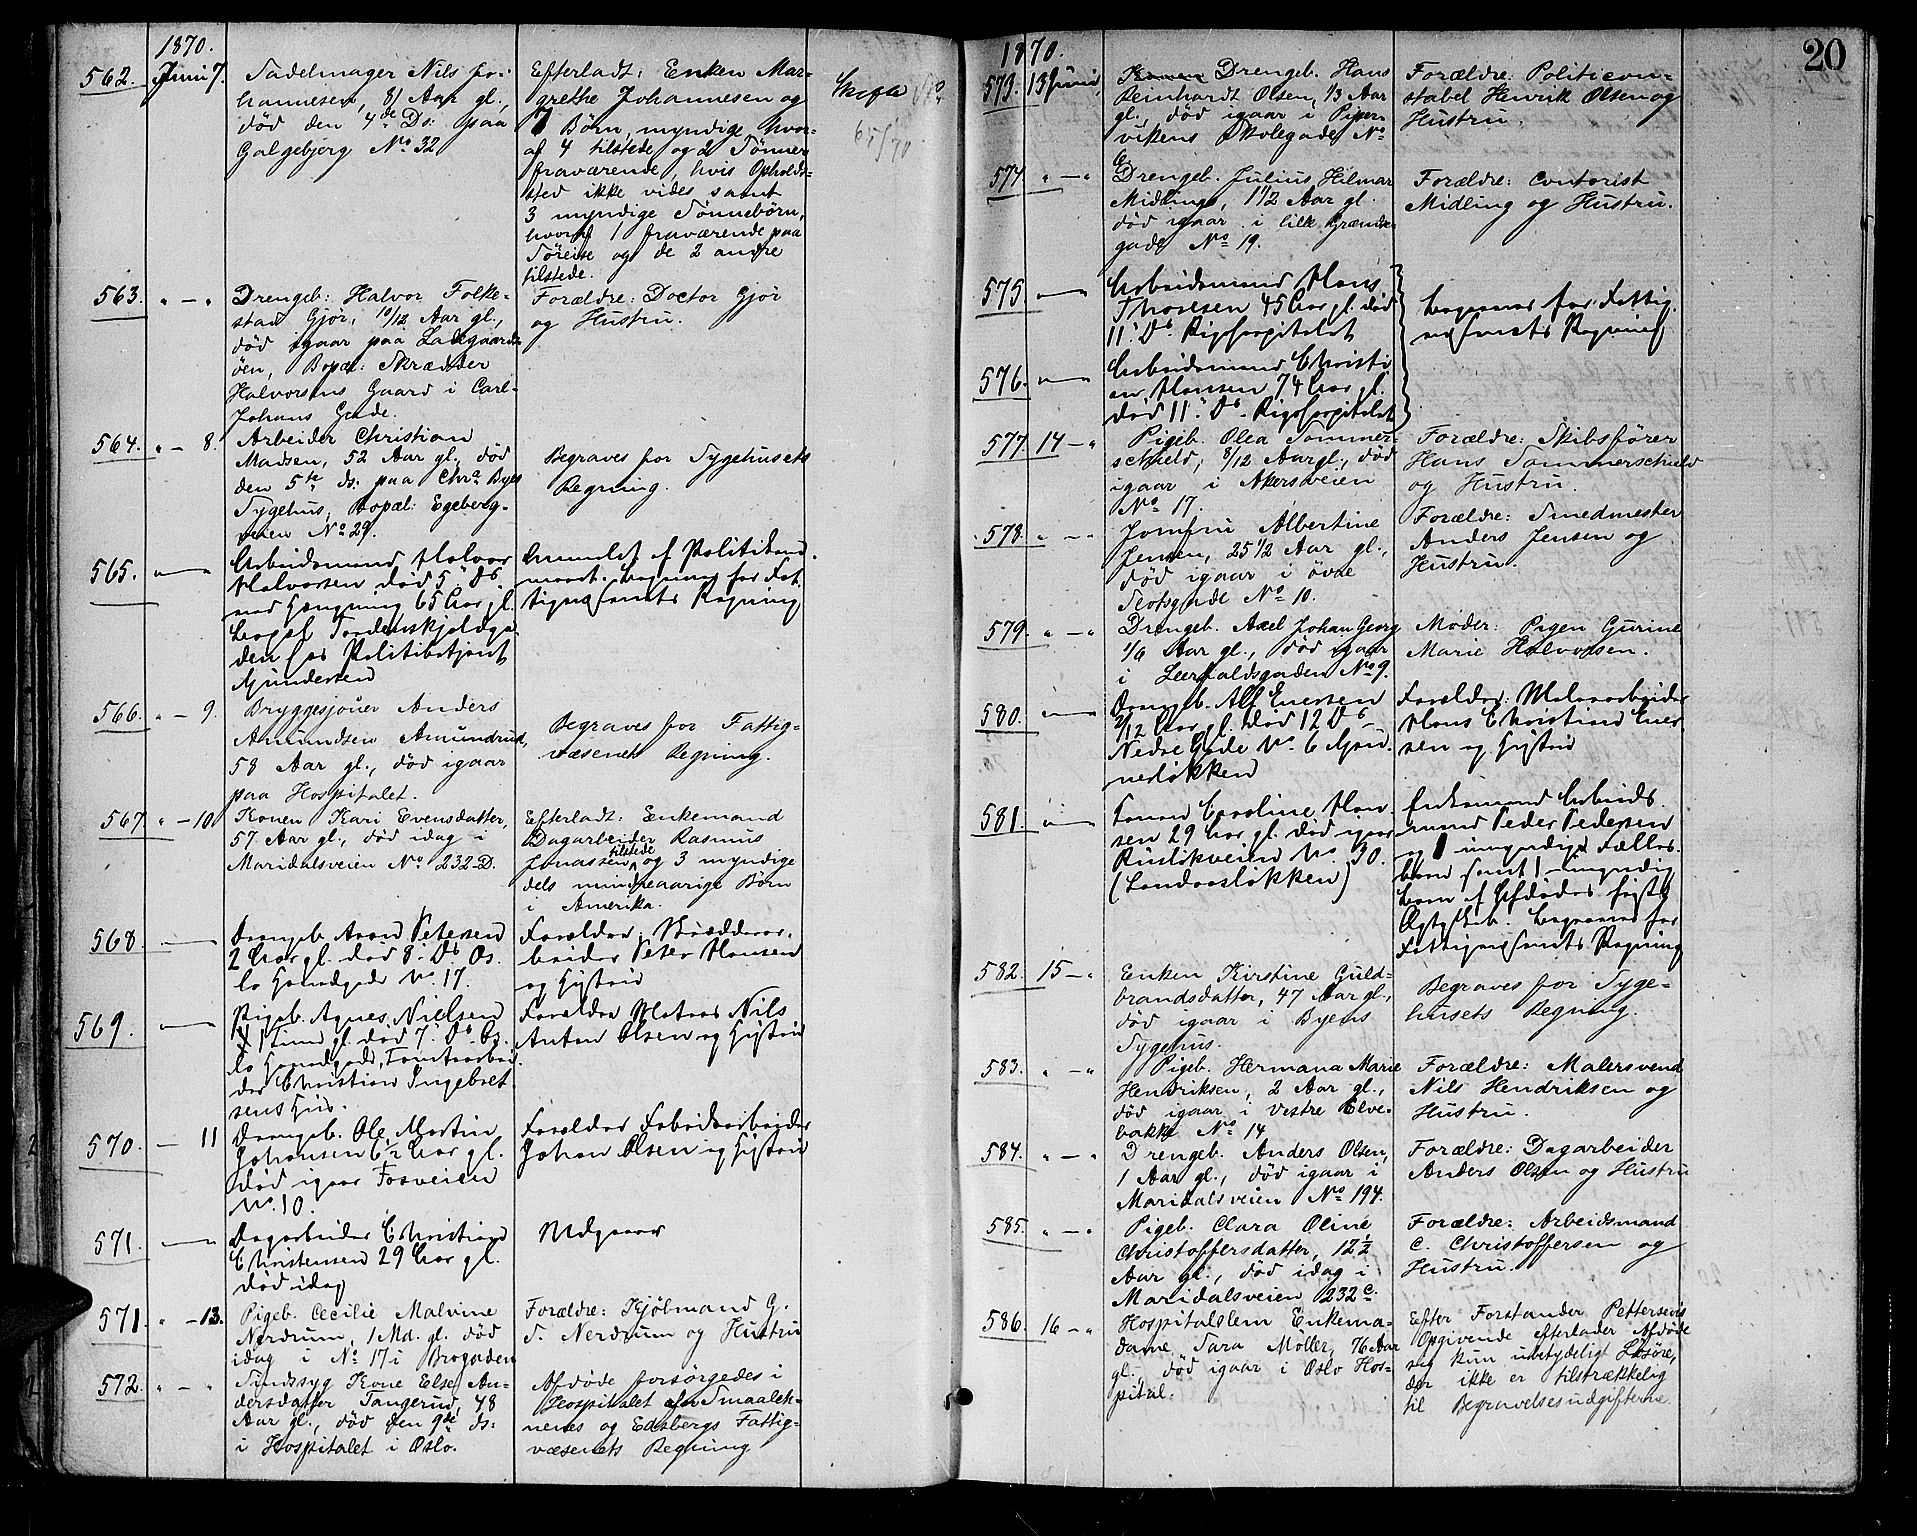 1870.
562. Juni 7. Sadelmager Nils Jo-
hannesen, 81 Aar gl.,
död den 4de Ds: paa
Galgebjerg No 32
Efterladt: Enken Mar-
grethe Johannesen og
7 Börn, myndige hvor-
af 4 tilstede og 2 Sönner
fraværende, hvis Opholds-
sted ikke vides samt
3 myndige Sönnebörn,
hvoraf 1 fraværende paa
Söreise og de 2 andre
tilstede.
65/70
563. " - " Drengeb: Halvor Folke-
stad Gjör, 10/12 Aar gl.,
död igaar paa Ladegaards-
öen, Bopæl: Skrædder
Halvorsens Gaard i Carl-
Johans Gade.
Forældre: Doctor Gjör
og Hustru.
564. " - 8. Arbeider Christian
Madsen, 52 Aar gl., död
den 5te ds: paa Chra Byes
Sygehus, Bopæl: Egeberg-
veien No 29.
Begraves for Sygehusets
Regning.
565. Arbeidsmand Halvor
Halvorsen död 5 Ds
ved Hængning 65 Aar gl.
Tordenskjoldsga-
den hos Politibetjent
Gundersen
Anmeldt af Politikam-
meret. Begraves for Fat-
tigvæsenets Regning
566. " - 9. Bryggesjouer Anders
Amundsen Amundrud,
58 Aar gl., död igaar
paa Hospitalet.
Begraves for Fattig-
væsenets Regning.
567 " - 10 Konen Kari Evensdatter,
57 Aar gl., död idag i
Maridalsveien No 232-D.
Efterladt: Enkemand
Dagarbeider Rasmus
Jonassen tilstede og 3 myndige
dels mindreaarige Börn
i Amerika.
568. Drengeb. Petersen
2 Aar gl. död 8 Ds Os-
lo Hovedgade No. 17.
Forældre: Skrædderar-
beider Peter Hansen
og Hustru
569. Pigeb. Agnes Nielsen
1 Time gl. död 7 Ds Os-
lo Hovedgade, Tomtearbei-
der Christian Ingebret
sens Hus.
Forældre Matros Nils
Anton Olsen og Hustru
570. - 11 Drengeb. Ole Martin
Johansen 6½ Aar gl.
död igaar Fosveien
No. 10.
Forældre Fabrikarbeider
Johan Olsen og Hustru
571. Dagarbeider Christian
Christensen 29 Aar gl.
död idag
Udgaar
571. " - 13. Pigeb. Cecilie Malvine
Nerdrum, 1 Md. gl. död
idag i No 17 i Brogaden
Forældre: Kjöbmand G.
S. Nerdrum og Hustru
572. " - " Sindssyg Kone Else An-
dersdatter Tangerud, 48
Aar gl., död den 9de ds:
i Hospitalet i Oslo.
Afdöde forsörgedes i
Hospitalet for Smaaleh-
nenes og Edsbergs Fattig-
væsenets Regning
20
1870.
573. 13 Juni Drengeb. Hans
Reinhardt Olsen, 1/3 Aar
gl., död igaar i Piper-
vikens Skolegade No
6
Forældre: Politicon-
stabel Henrik Olsen og
Hustru.
574 " - " Drengeb. Julius Hilmar
Midling, 1½ Aar gl.
död igaar i lille Grænse-
gade No 19.
Forældre: Contorist
Midling og Hustru.
575. Arbeidsmand Hans
Thoresen 45 Aar gl. död
11 Ds Rigshospitalet
576. Arbeidsmand Christi
an Hansen 74 Aar gl.
död 11 Ds. Rigshospitalet
Begraves for Fattig-
væsenets Regning
577. 14 - " Pigeb. Olea Sommer-
schield, 8/12 Aar gl., död
igaar i Akersveien
No 17.
Forældre: Skibsförer
Hans Sommerschield
og Hustru.
578. " - " Jomfru Albertine
Jensen, 25½ Aar gl.,
död igaar i övre
Slotsgade No 10.
Forældre: Smedmester
Anders Jensen og
Hustru.
579. " - " Drengeb. Axel Johan Georg
1/6 Aar gl., död igaar
i Leerfaldsgaden No 9.
Moder: Pigen Gurine
Marie Halvorsen.
580. Drengeb. Alf Enersen
2/12 Aar gl. död 12 Ds
Nedre Gade No. 6 Grü-
nerlökken
Forældre: Malerarbeider
Hans Christian Ener
sen og Hustru
581. Konen Caroline Han-
sen 29 Aar gl. död igaar
Ruslökveien No. 30.
Enkemand Arbeids-
mand Peder Pedersen
og 1 umyndig Fælles-
barn samt 1 umyndig
Barn af Afdödes förste
Ægteskab. Begraves for
Fattigvæsenets Regning
582. 15 - " Enken Kirstine Guld-
brandsdatter, 47 Aar gl.,
död igaar i Byens
Sygehus.
Begraves for Syge-
husets Regning.
583. " - " Pigeb. Hermana Marie
Hendriksen, 2 Aar gl.,
död igaar i Vestre Elve-
bakke No 14
Forældre: Malersvend
Nils Hendriksen og
Hustru.
584. " - " Drengeb. Anders Olsen,
1 Aar gl., död igaar i
Maridalsveien No 194.
Forældre: Dagarbeider
Anders Olsen og Hustru
585. " - " Pigeb. Clara Oline
Christoffersdatter, 12½
Aar gl., död idag i
Maridalsveien 232 c.
Forældre: Arbeidsmand
C. Christoffersen og
Hustru.
586. 16 - " Hospitalslem Enkema-
dame Sara Möller, 76 Aar
gl., död igaar i Oslo Hos-
pital.
Efter Forstander Pettersens
Opgivende efterlader Afdöde
sig kun ubetydeligt Lösöre,
der ikke er tilstrækkelig
til Begravelsesudgifterne.